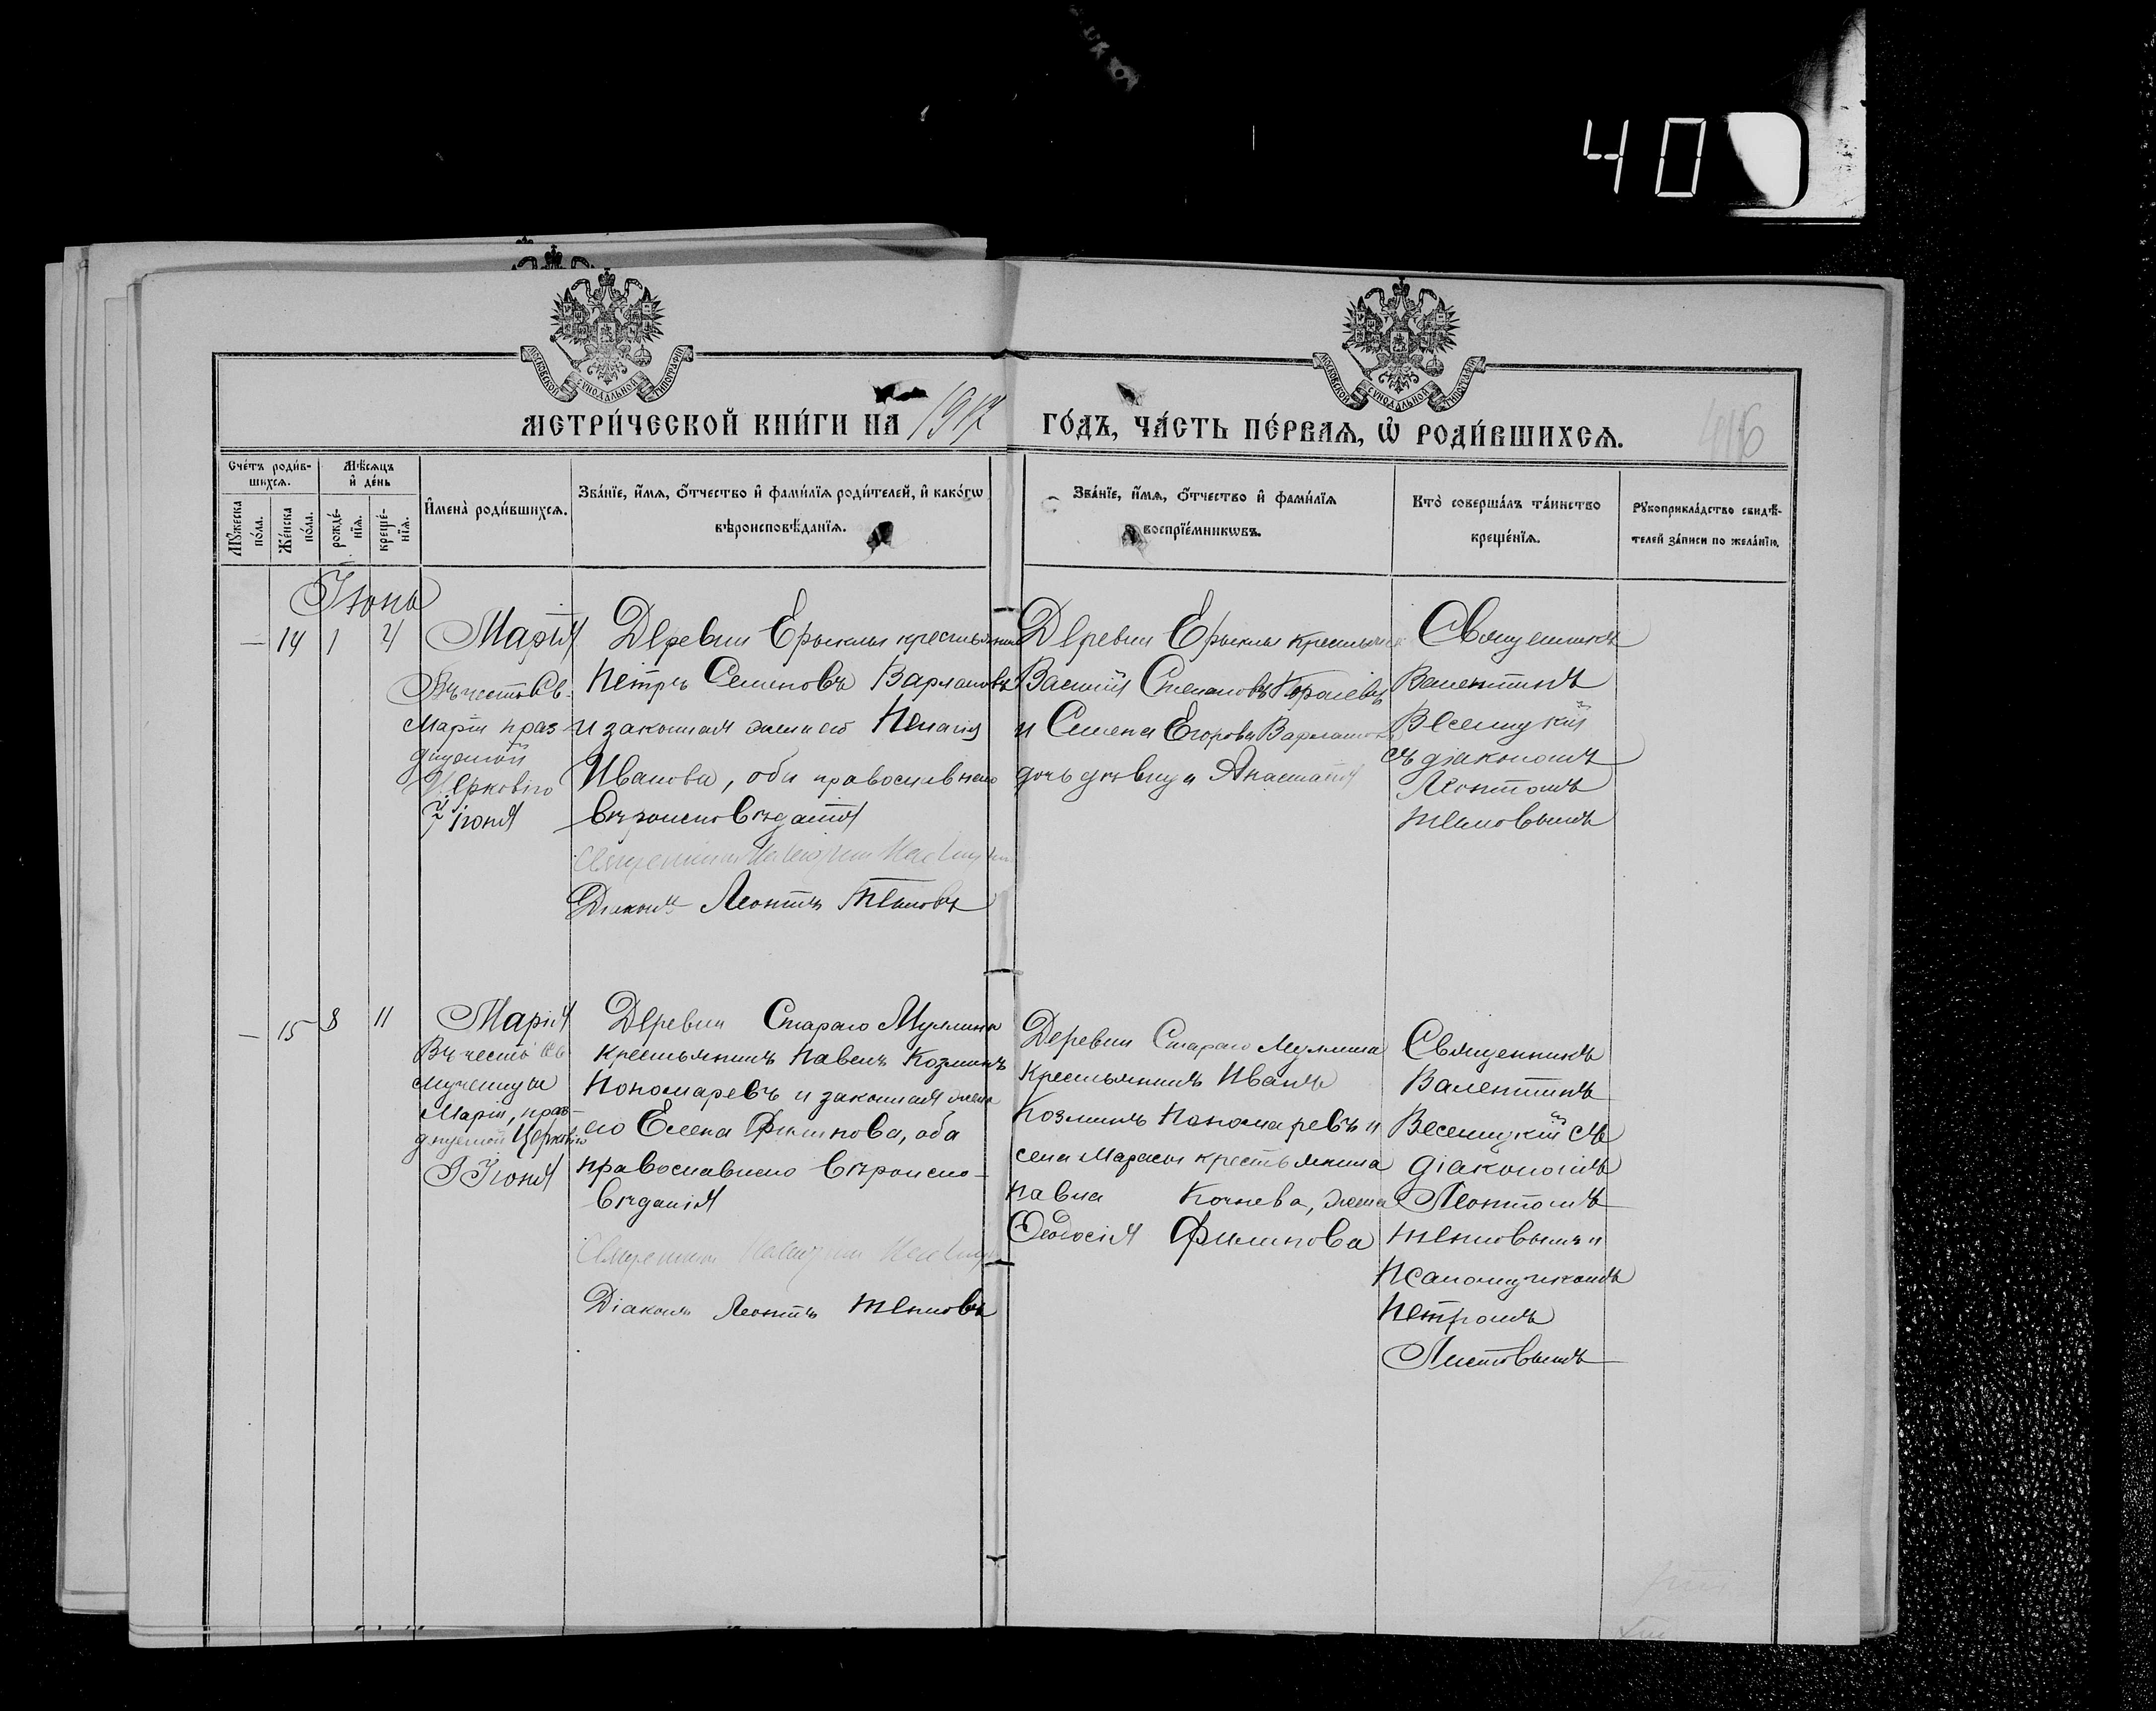 40
МОСКОВСКОЙ СУНОДАЛЬНОЙ ТИПОГРАФІИ
МОСКОВСКОЙ СУНОДАЛЬНОЙ ТИПОГРАФІИ
МЕТРИ́ЧЕСКОЙ КНИ́ГИ НА 1917
ГО́ДЪ, ЧА́СТЬ ПЕ́РВАѦ, Ѡ҆ РОДИ́ВШИХСѦ.
Сче́тъ роди́в-
шихсѧ.
Мѣ́сѧцъ
и҆ де́нь
Мꙋ́жеска
по́ла.
Же́нска
по́ла.
рожде́-
нїѧ.
креще́-
нїѧ.
И҆мена̀ роди́вшихсѧ.
Зва́нїе, и҆́мѧ, ѻ҆́тчество и҆ фами́лїѧ роди́телей, и҆ како́гѡ
вѣроисповѣ́данїѧ.
Зва́нїе, и҆́мѧ, ѻ҆́тчество и҆ фами́лїѧ
воспрїе́мникѡвъ.
Кто̀ соверша́лъ та́инство
креще́нїѧ.
Рꙋкоприкла́дство свидѣ́-
телей за́писи по жела́нїю.
Іюнь
— 14 1 4
Марія
Въ честь Св.
Маріи праз-
днуемой
Церковію
4 іюня
Деревни Ерыклы крестьянинъ
Петръ Семеновъ Варламовъ
и законная жена его Пелагія
Иванова, оба православнаго
вѣроисповѣданія
Діаконъ Леонтій
Деревни Ерыклы крестьянинъ
Василій Степановъ Королевъ
и Семена Егорова Варламова
дочь дѣвица Анастасія
Священникъ
Валентинъ
Веселицкій
съ діакономъ
Леонтіемъ
— 15 8 11
Марія
Въ честь Св
мученицы
Маріи, праз-
днуемой Церковію
9 Іюня
Деревни Стараго Муллина
крестьянинъ Павелъ Козминъ
Пономаревъ и законная жена
его Елена Филипова, оба
православнаго вѣроиспо-
вѣданія
Діаконъ Леонтій
Деревни Стараго Муллина
крестьянинъ Иванъ
Козминъ Пономаревъ и
села Марасы крестьянина
Павла Кочнева, жена
Ѳеодосія Филипова
Священникъ
Валентинъ
Веселицкій съ
діакономъ
Леонтіемъ
Псаломщикомъ
Петромъ
Листовымъ